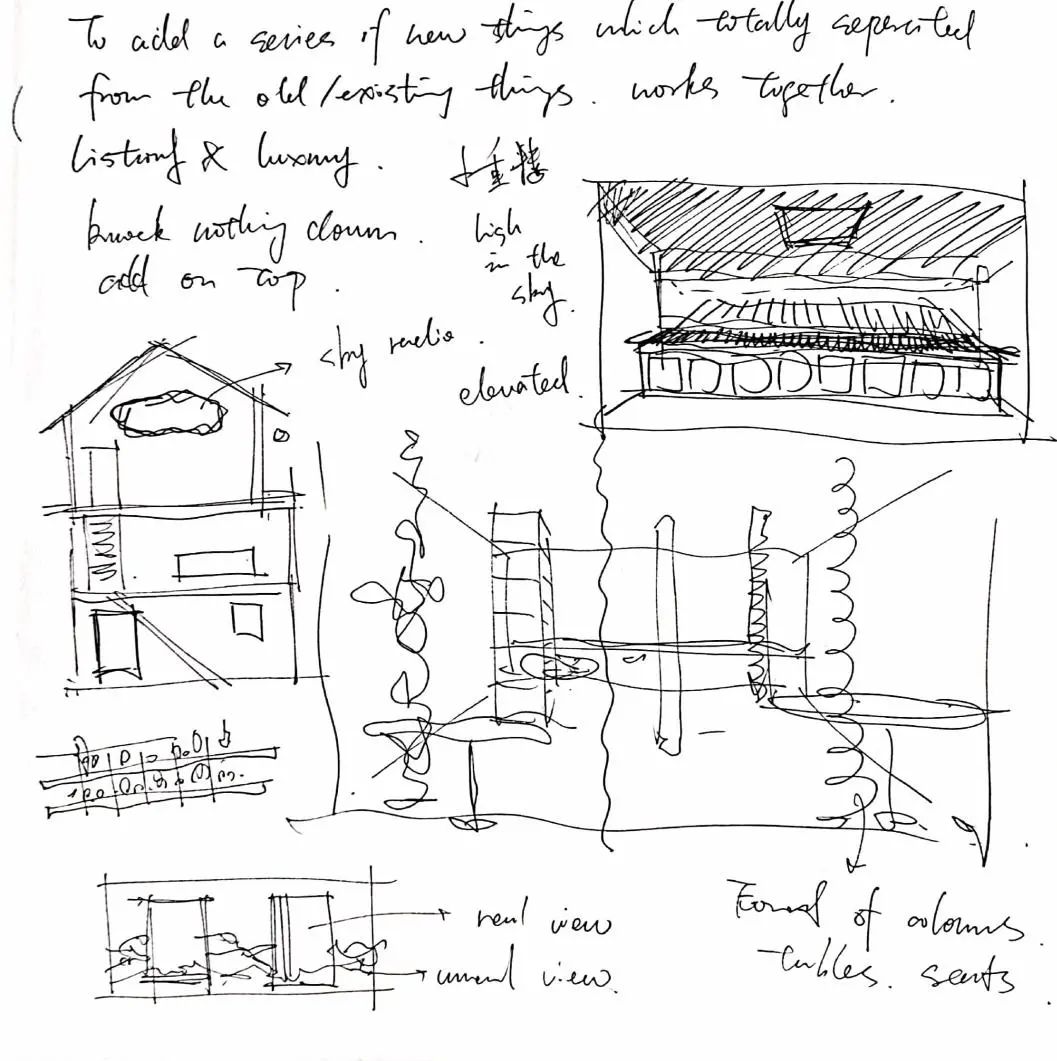 To add a series of new things which totally seperated
from the old/existing things. works together.
& luxury.
knock nothing down.
add on top.
重楼
high
in the
sky.
sky
elevated.
real view
view.
Forest of columns.
tables. seats